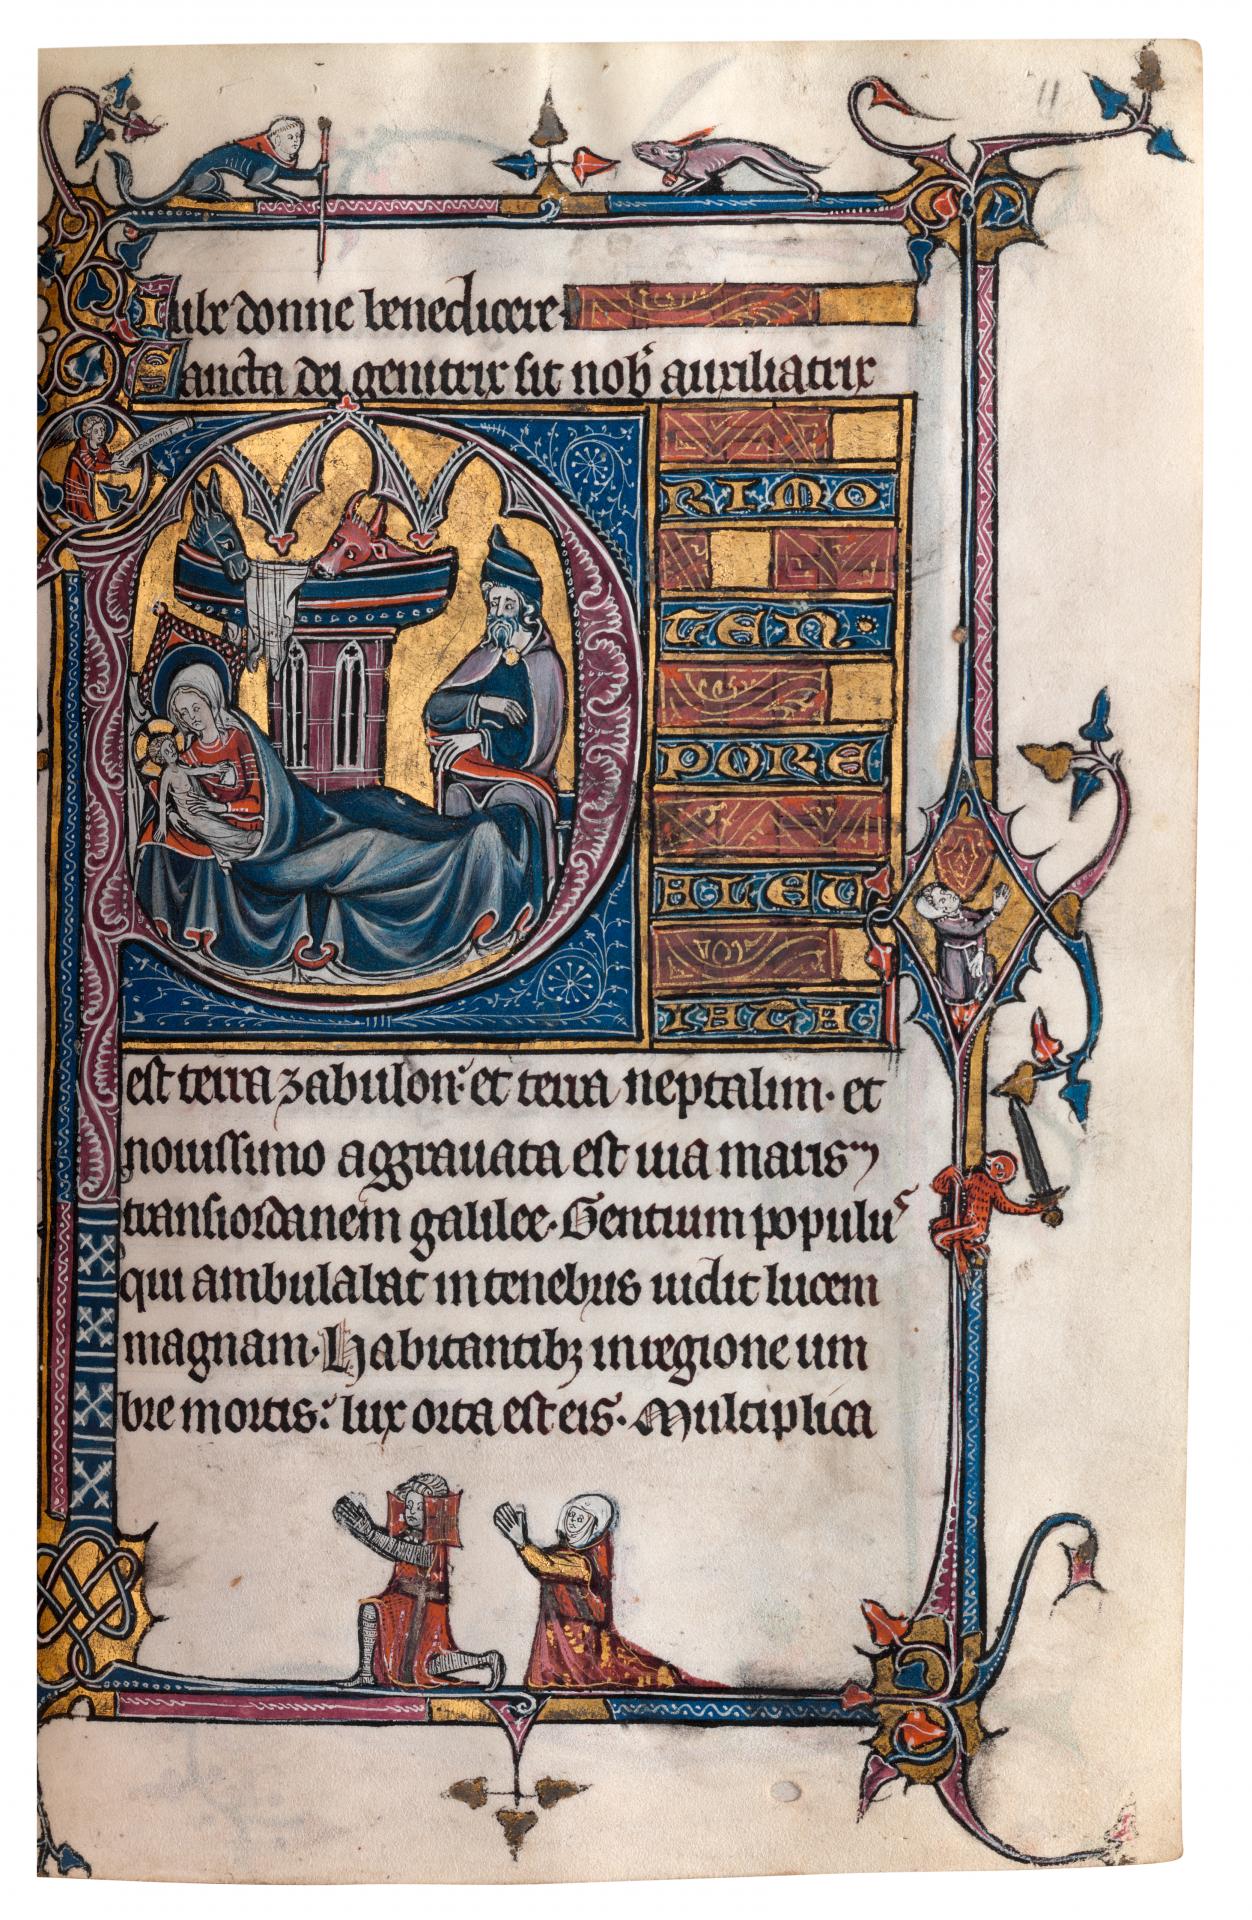 11
Iube donne benedicere·
Sancta dei genitrix sit nob̄ auxiliatrix
PRIMO
TEN·
PORE
ALEU
IATA
est terra zabulon: et terra neptalim· et
nouissimo aggrauata est uia maris
transiordanem galilee· Gentium populuˢ
qui ambulabat in tenebris uidit lucem
magnam· Habitantibꝫ in regione um
bre mortis: lux orta est eis· Multiplica